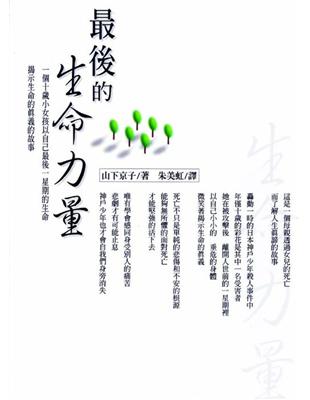 最後的
生命力量
一個十歲小女孩以自己最後一星期的生命
揭示生命的眞義的故事
山下京子/著 朱美虹/譯
這是一個母親透過女兒的死亡
而了解人生眞諦的故事
轟動一時的日本神戶少年殺人事件中
年僅十歲的彩花是其中一名受害者
她在被攻擊後 離開人世前的一星期裡
以自己小小的 垂危的身體
微笑著揭示生命的眞義
死亡不只是單純的悲傷和不安的根源
能夠無所懼的面對死亡
才能堅強的活下去
唯有學會感同身受別人的痛苦
悲劇才有可能止息
神戶少年也才會自我們身旁消失
生命力量